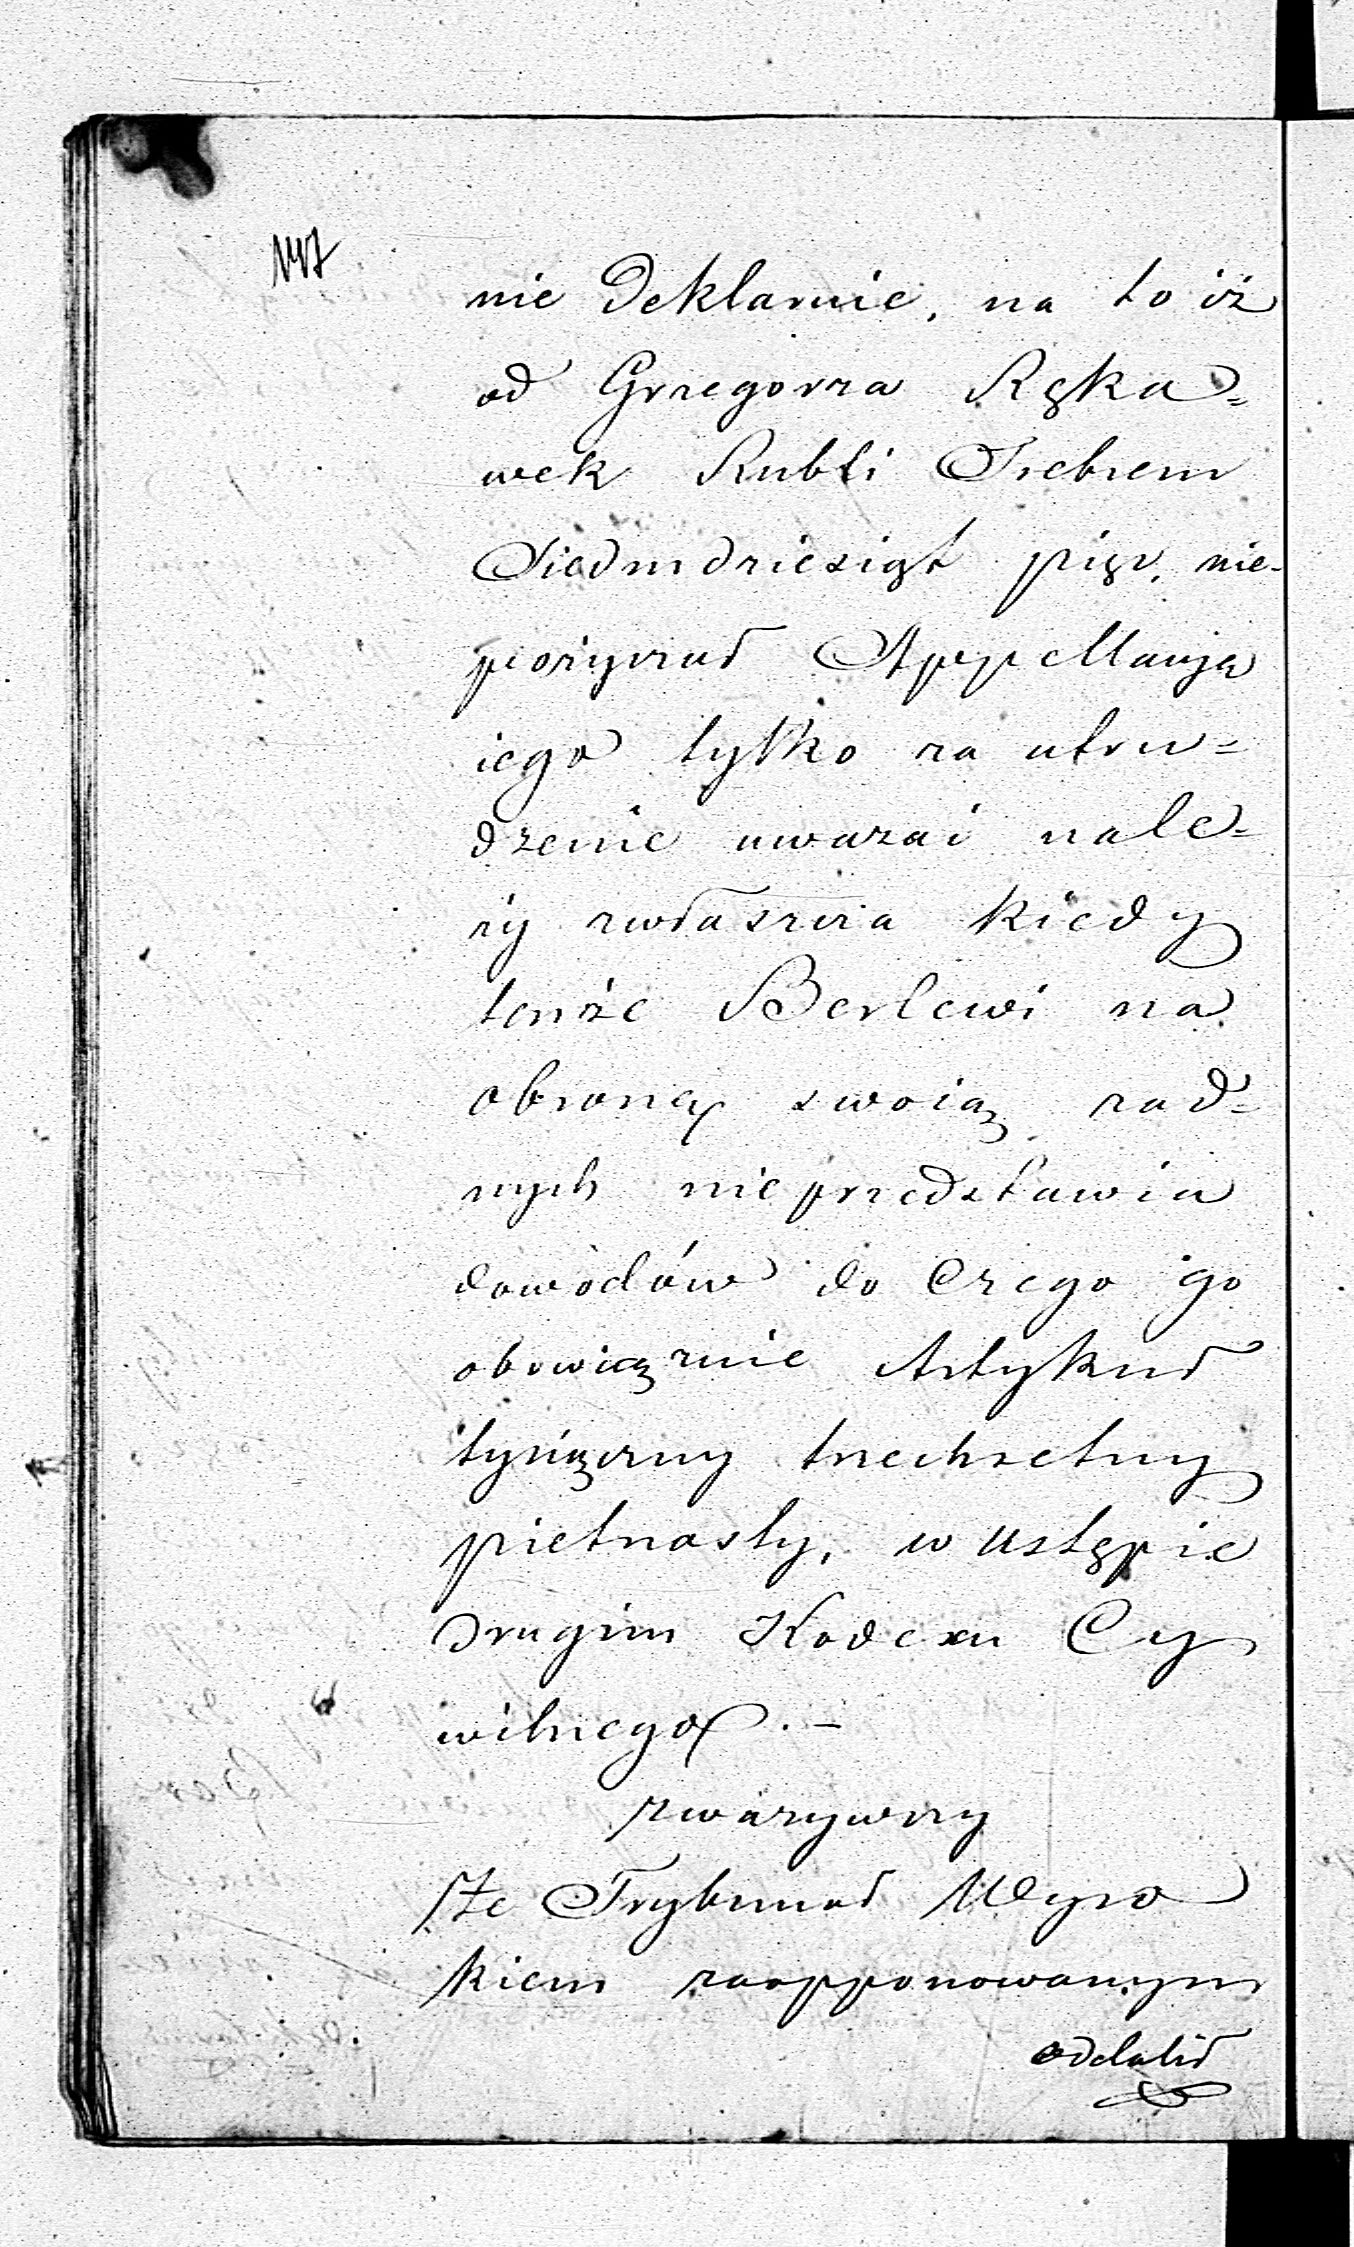 147
nie Deklaruie, na to iż
od Grzegorza Ręka=
wek Rubli Srebrem
Siedmdziesiąt pięc, nie-
pożyczał Appellacyą
iego tylko za utru=
dzenie uwazać nale=
ży zwłaszcza kiedy
tenże Berlewi na
obronę swoią zad=
nych nieprzedstawia
dowodów do czego go
obowiązuie Artykuł
tysiączny trzechsetny
pietnasty, w ustępie
drugim Kodexu Cy
wilnego. -
zważywszy
że Trybunał Wyro
kiem zaopponowanym
oddalił